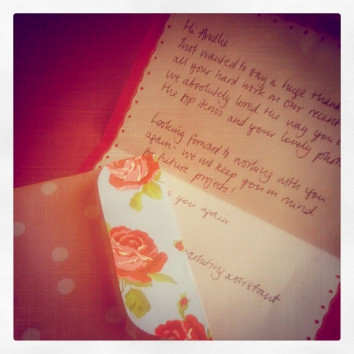 Hi Amelie
Just wanted to say a huge thank
all your hard work on our recent
we absolutely loved the way you
the pip items and your lovely
Looking forward to working with you
again. we will keep you in mind
for future projects,
you again
marketing assistant